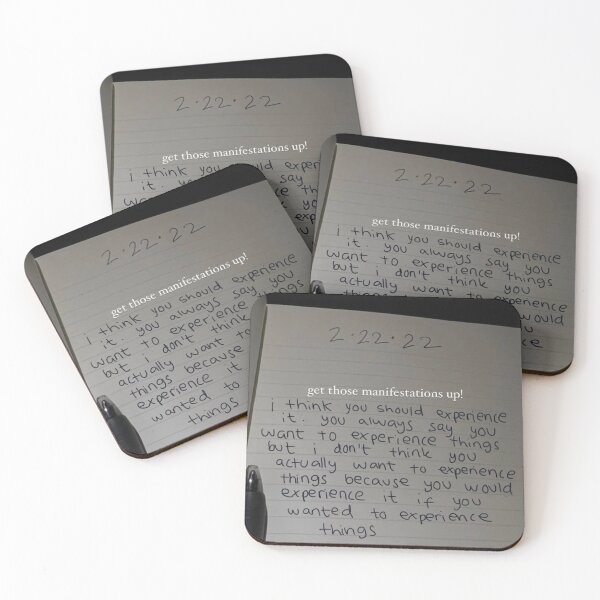 2.22.22
get those manifestations up!
i think you should
it. say
2.22.22
get those manifestations up!
i think you should experience
it. you always say you
want to experience things
but i don't think you
actually want to experience
would
2.22.22
get those manifestations up!
i think you should experience
it. you always say you
want to experience things
but i don't think
actually want to
things because
experience it
wanted to
things
2.22.22
get those manifestations up!
i think you should experience
it. you always say you
want to experience things
but i don't think you
actually want to experience
things because you would
experience it if you
wanted to experience
things